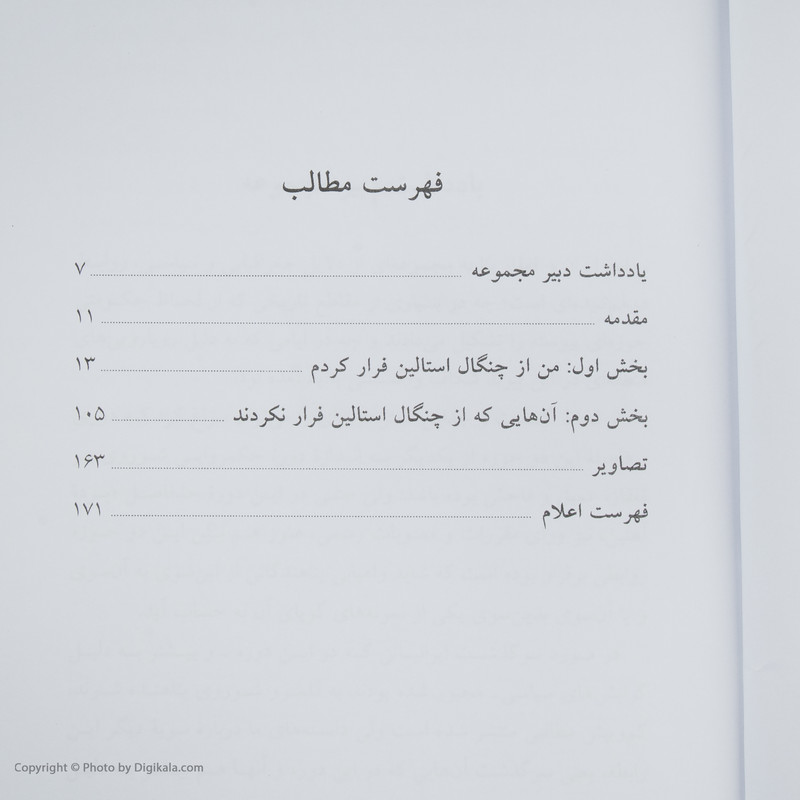 فهرست مطالب
یادداشت دبیر مجموعه ........ ۷
مقدمه ........ ۱۱
بخش اول: من از چنگال استالین فرار کردم ........ ۱۳
بخش دوم: آن‌هایی که از چنگال استالین فرار نکردند ........ ۱۰۵
تصاویر ........ ۱۶۳
فهرست اعلام ........ ۱۷۱
Copyright © Photo by Digikala.com